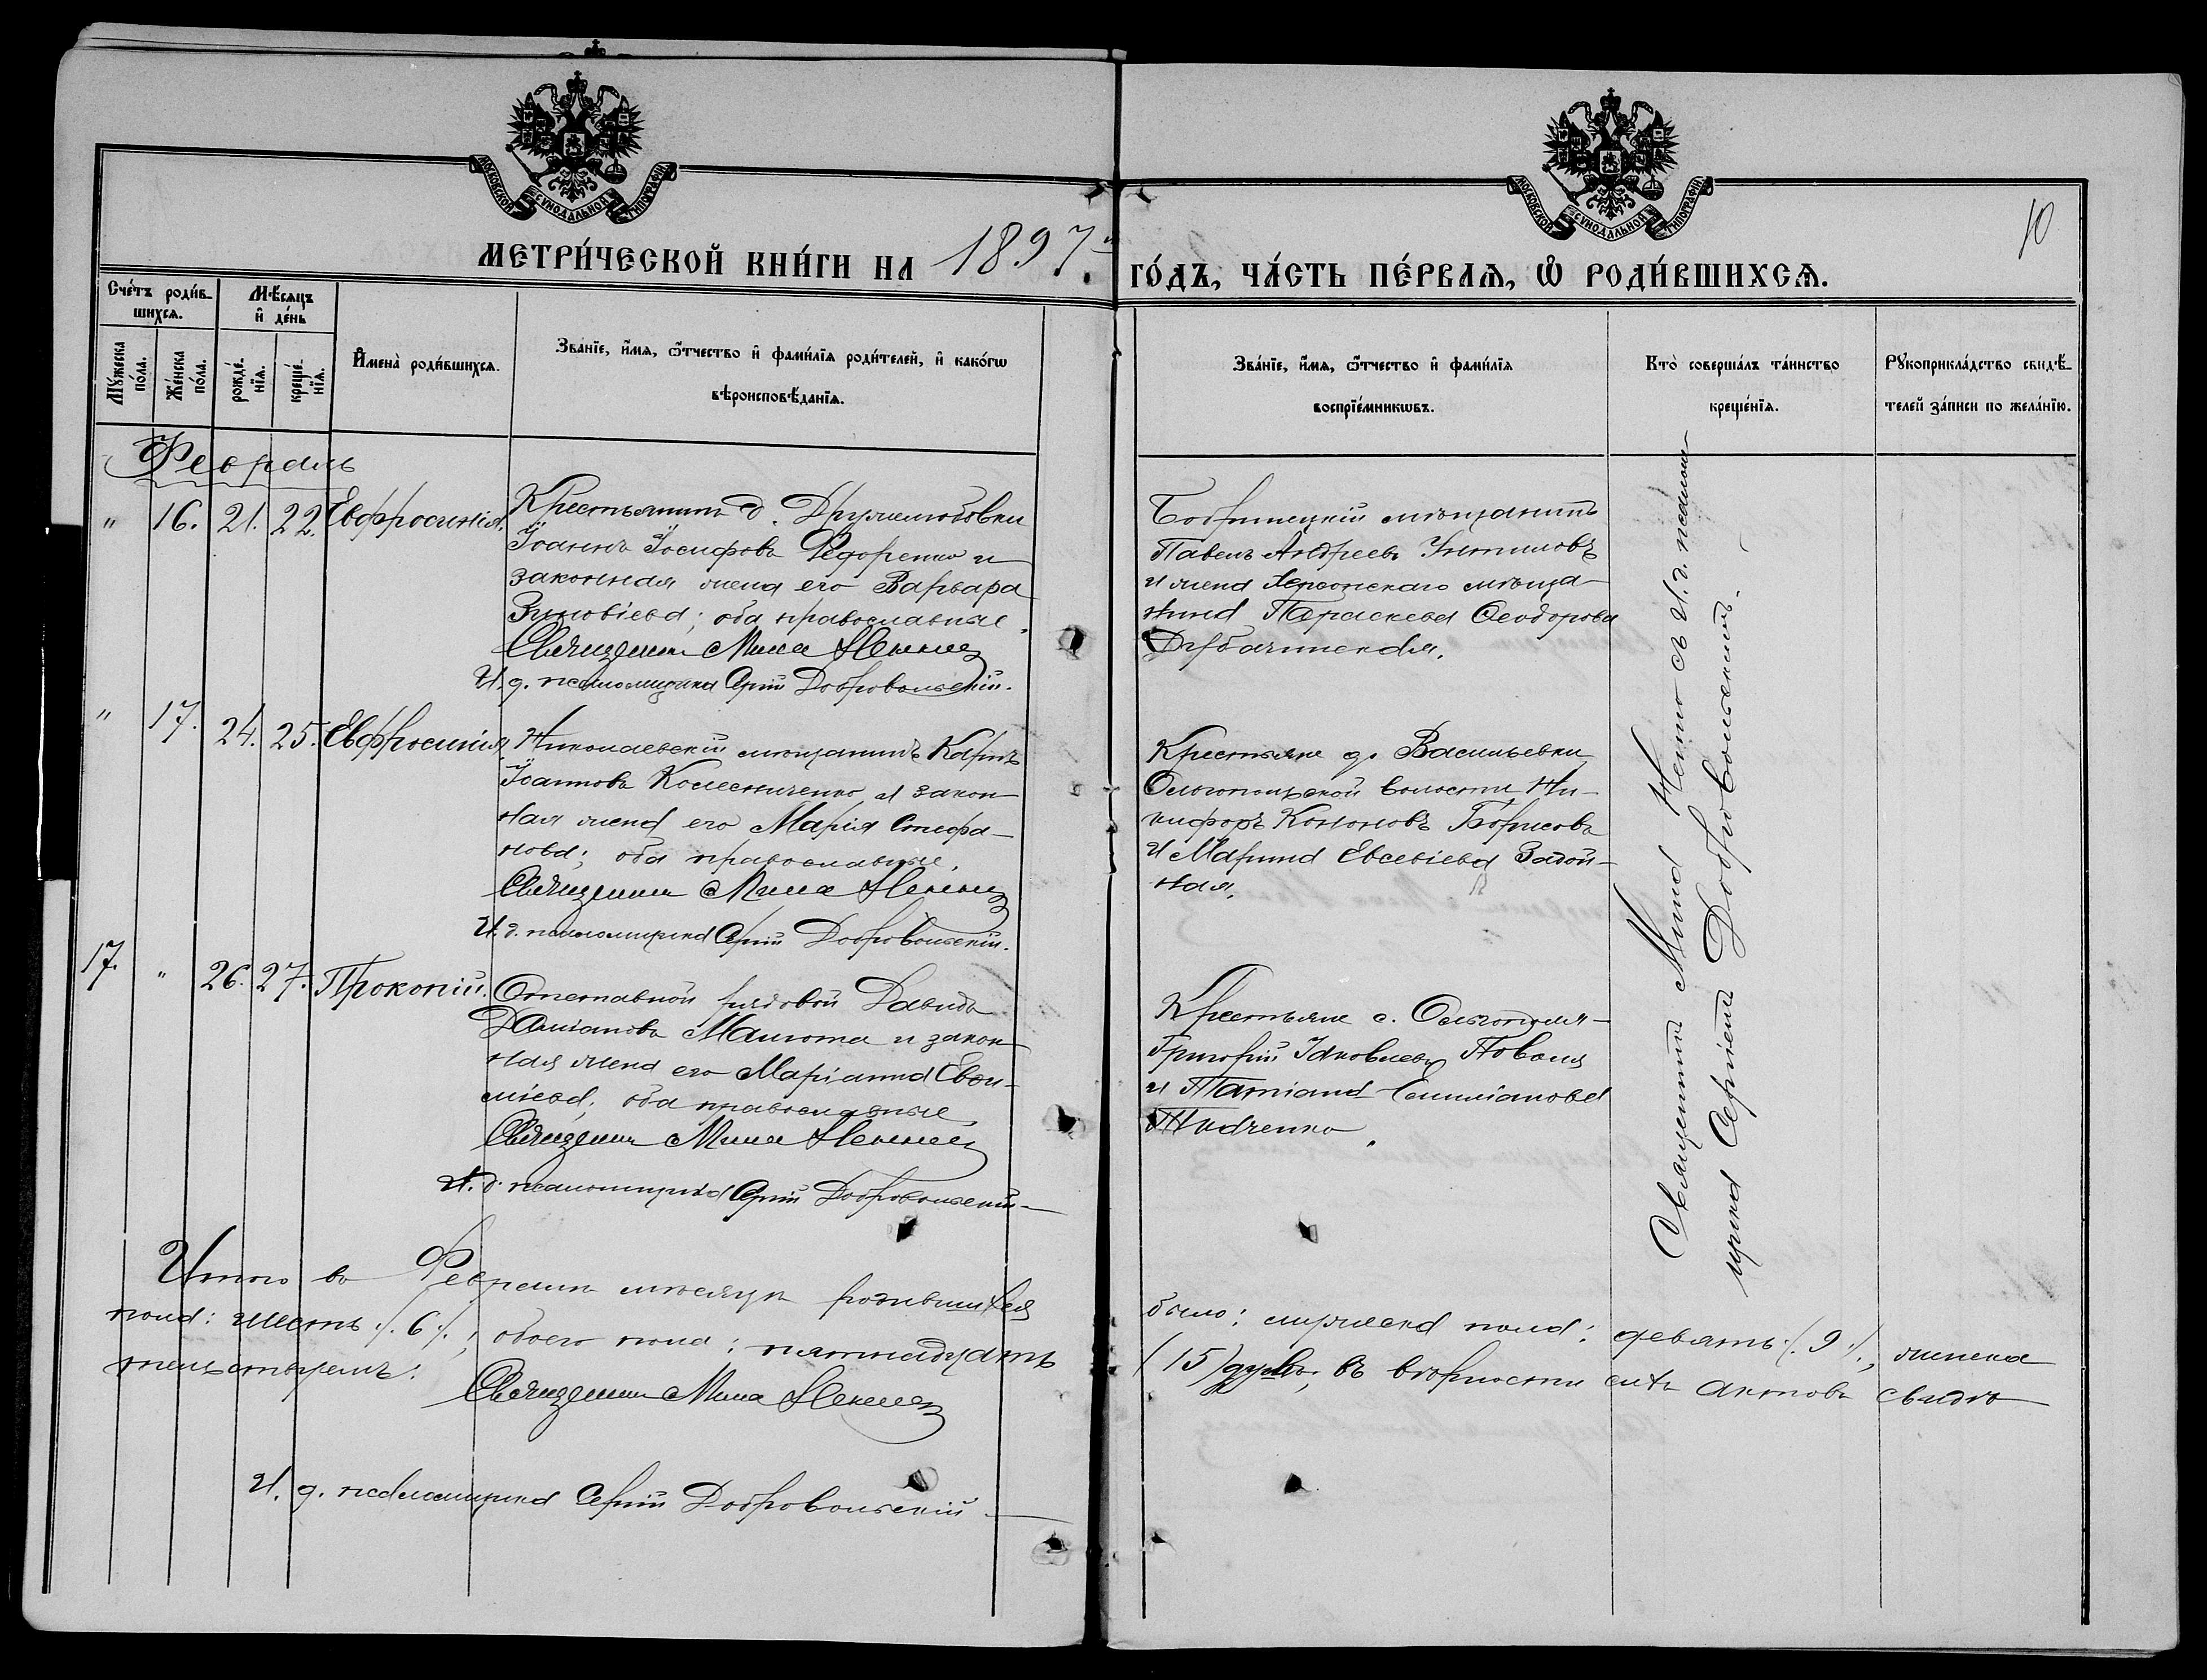 МОСКОВСКОЙ СУНОДАЛЬНОЙ ТИПОГРАФІИ
МОСКОВСКОЙ СУНОДАЛЬНОЙ ТИПОГРАФІИ
10
МЕТРИ́ЧЕСКОЙ КНИ́ГИ НА 1897й ГО́ДЪ, ЧА́СТЬ ПЕ́РВАѦ, Ѽ РОДИ́ВШИХСѦ.
Сче́тъ роди́в-
шихсѧ.
Мѣ́сѧцъ
и҆ де́нь
Мꙋ́жеска
по́ла.
Же́нска
по́ла.
рожде́-
нїѧ.
креще́-
нїѧ.
И҆мена̀ роди́вшихсѧ.
Зва́нїе, и҆́мѧ, ѻ҆́тчество и҆ фами́лїѧ роди́телей, и҆ како́гѡ
вѣроисповѣ́данїѧ.
Зва́нїе, и҆́мѧ, ѻ҆́тчество и҆ фами́лїѧ
воспрїе́мникѡвъ.
Кто̀ соверша́лъ та́инство
креще́нїѧ.
Рꙋкоприкла́дство свидѣ́-
телей за́писи по жела́нїю.
Февраль
" 16. 21. 22. Евфросинія.
Крестьянинъ д. Дружелюбовки
Іоаннъ Іосифовъ Федоренко и
законная жена его Варвара
Зиновіева; оба православные.
Священникъ Мина
И. д. псаломщика Сергій Добровольскій.
Бобринецкій мѣщанинъ
Павелъ Андреевъ
и жена Херсонскаго мѣща-
нина Параскева Ѳеодорова
" 17. 24. 25. Евфросинія
Николаевскій мѣщанинъ Карпъ
Іоанновъ Колесниченко и закон-
ная жена его Марія Стефа-
нова; оба православные.
Священникъ Мина
И. д. псаломщика Сергій Добровольскій.
Крестьяне д. Васильевки
Ольгопольской волости Ни-
кифоръ Кононовъ Борисовъ
и Марина Евсевіева Задой-
ная.
17. " 26. 27. Прокопій.
Отставной рядовой Давидъ
Даміановъ Малюта и закон-
ная жена его Маріанна Евѳи-
міева; оба православные
Священникъ Мина
И. д. псаломщика Сергій Добровольскій
Крестьяне с. Ольгополя
Григорій Іаковлевъ Коваль
и Татіана Емиліанова
Ткаченко.
Священникъ Мина съ И. д. псалом-
щика Сергіемъ Добровольскимъ.
Итого въ Февралѣ мѣсяцѣ родившихся было: мужеска пола: девять /.9./, женска
пола: шесть /.6./, обоего пола: пятнадцать (15) душъ; въ вѣрности сихъ актовъ свидѣ-
тельствуемъ:
Священникъ Мина
И. д. псаломщика Сергій Добровольскій